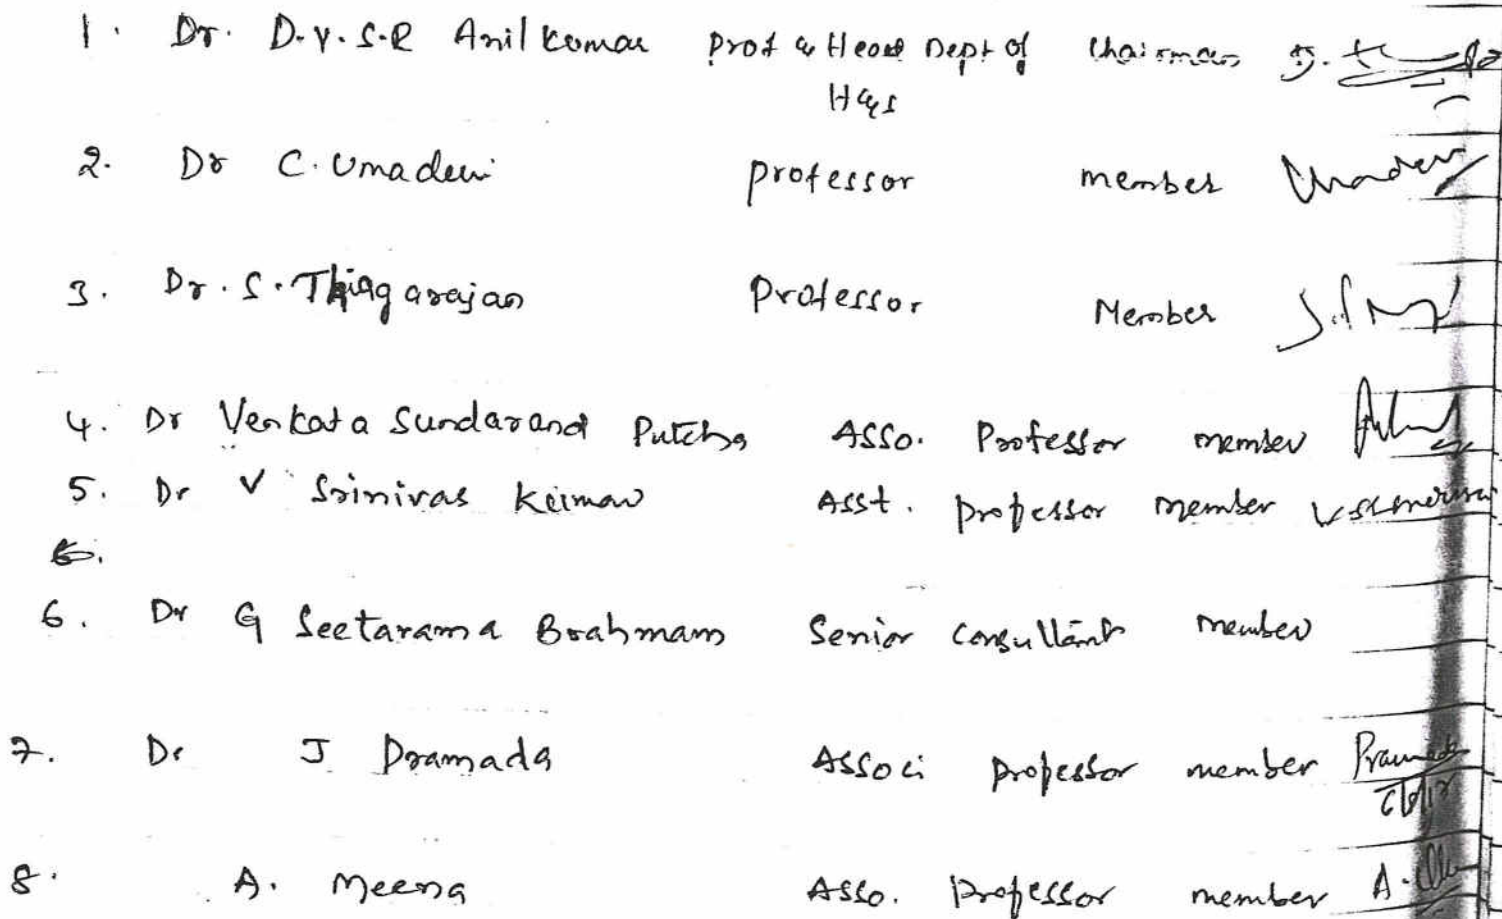 1. Dr. D.V.S.R Anil Kumar Prof & Head Dept of Chairman
H&S
2. Dr C. Umadevi professor member Umadevi
3. Dr. S. Thiagarajan Professor Member
4. Dr Venkata Sundaranand Putcha Asso. Professor member
5. Dr V Srinivas Kumar Asst. professor member
6.
6. Dr G Seetarama Brahmam Senior Consultant member
7. Dr J Pramada Associ professor member Pramada
8. A. Meena Asso. professor member